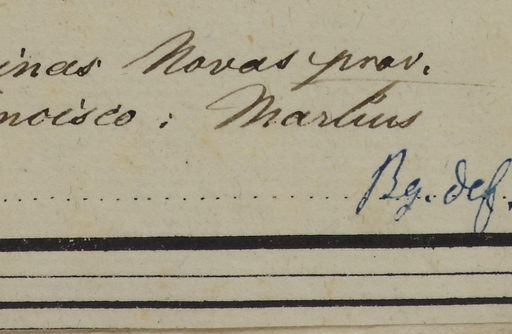 inas Novas prov.
ncisco : Martius
Bg. def.